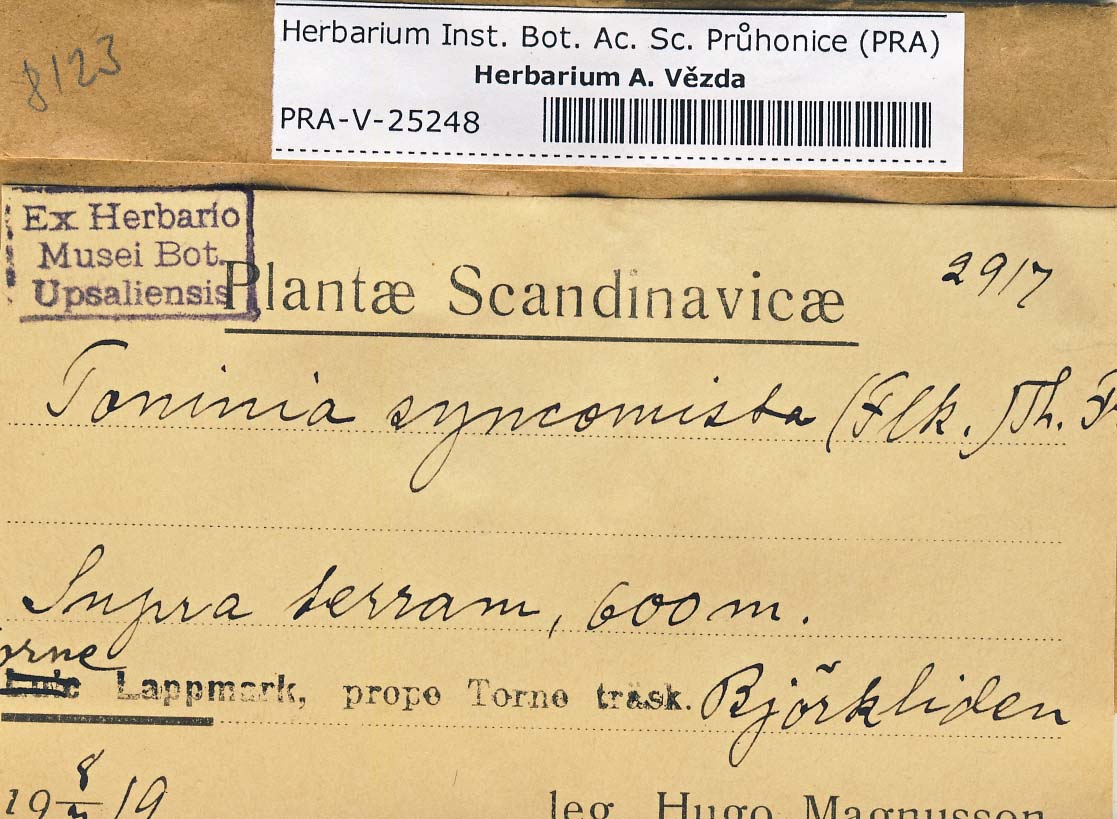 8123
Herbarium Inst. Bot. Ac. Sc. Průhonice (PRA)
Herbarium A. Vězda
PRA-V-25248
Ex Herbario
Musei Bot.
Upsaliensis
Plantæ Scandinavicæ
2917
Toninia syncomista (Flk.) Th. F
Supra terram, 600 m.
orne
Lappmark, prope Torne träsk. Björkliden
19 8/7 19
leg. Hugo Magnusson